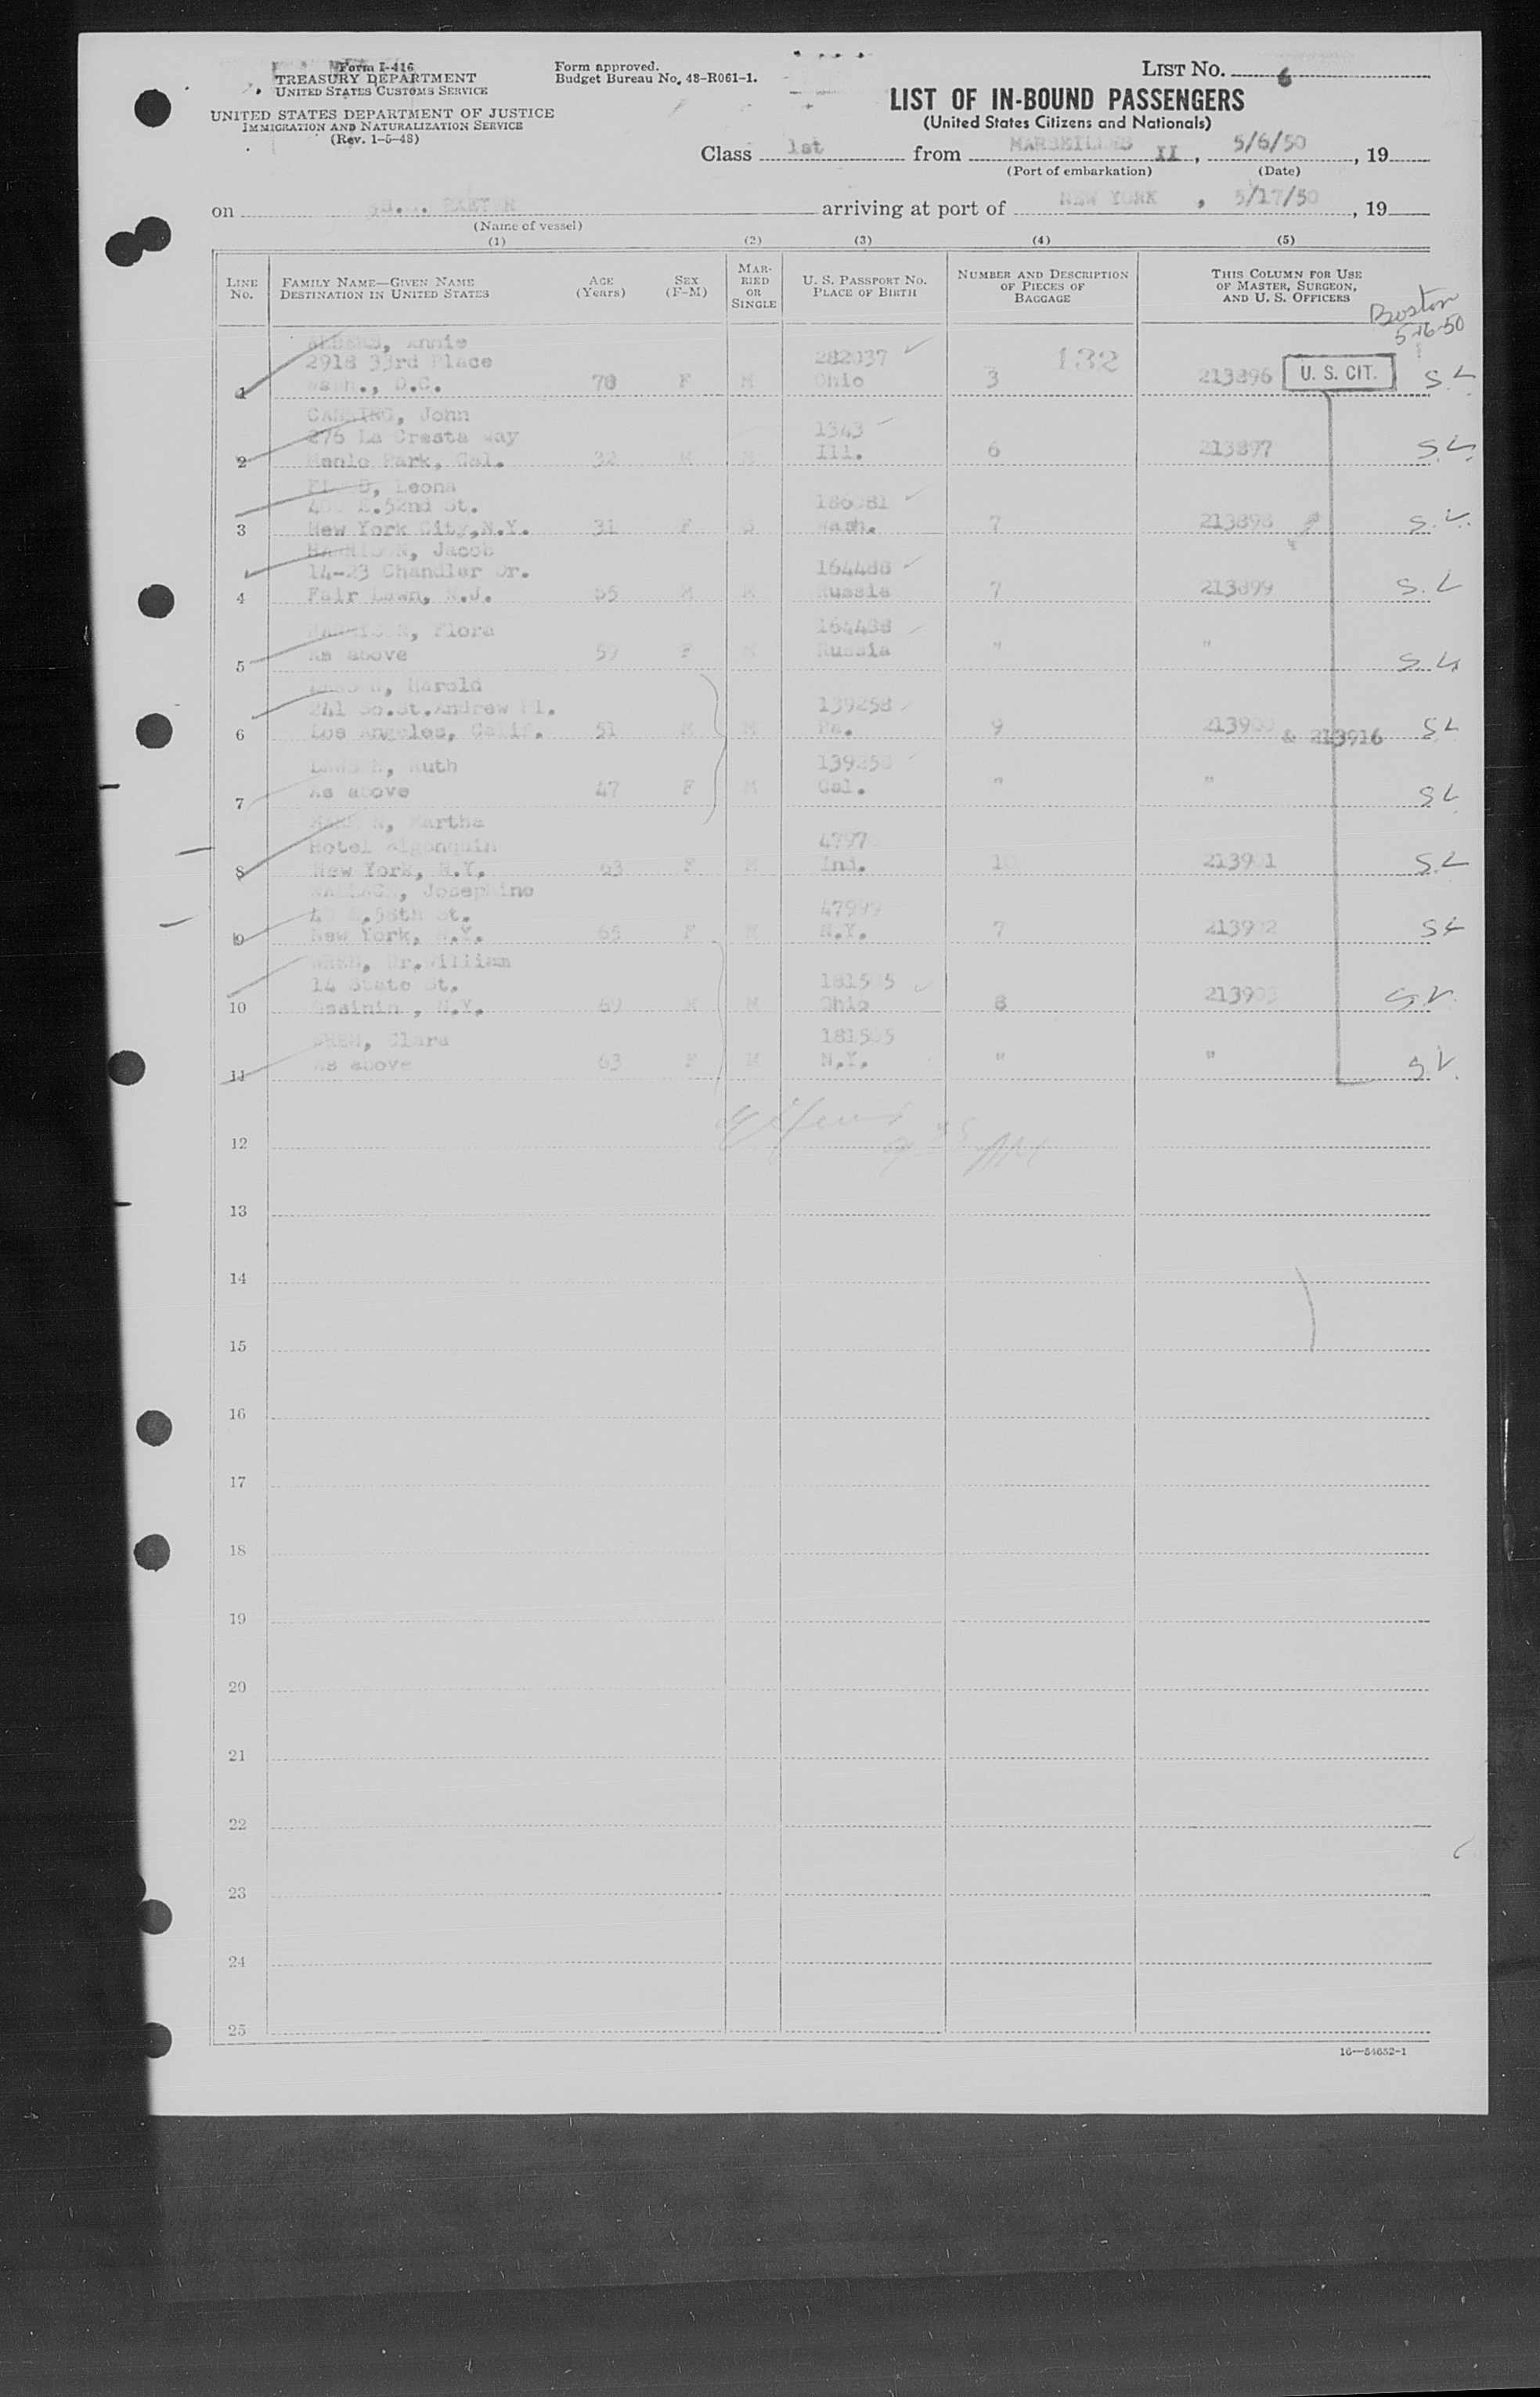 Form I-416
TREASURY DEPARTMENT
UNITED STATES CUSTOMS SERVICE
UNITED STATES DEPARTMENT OF JUSTICE
IMMIGRATION AND NATURALIZATION SERVICE
(Rev. 1-5-48)
Form approved.
Budget Bureau No. 48-R061-1.
LIST NO. 6
LIST OF IN-BOUND PASSENGERS
(United States Citizens and Nationals)
Class 1st from MARSEILLES II, 5/6/50, 19
(Port of embarkation) (Date)
on EXETER arriving at port of NEW YORK, 5/17/50, 19
(Name of vessel)
(1) (2) (3) (4) (5)
LINE NO.
FAMILY NAME—GIVEN NAME
DESTINATION IN UNITED STATES
AGE (Years)
SEX (F-M)
MARRIED OR SINGLE
U. S. PASSPORT NO.
PLACE OF BIRTH
NUMBER AND DESCRIPTION OF PIECES OF BAGGAGE
THIS COLUMN FOR USE OF MASTER, SURGEON, AND U. S. OFFICERS
Boston
5-16-50
Annie
2918 33rd Place 282037 132
1 Wash., D.C. 70 F M Ohio 3 213896 U. S. CIT. S.L
CANNING, John
275 La Cresta Way 1343
2 Menlo Park, Cal. 32 M Ill. 6 213897 S.L.
Leona
E.52nd St.
3 New York City,N.Y. 31 F S Wash. 7 213898 S.L.
HARRISON, Jacob
14-23 Chandler Dr. 164488
4 Fair Lawn, N.J. 65 M M Russia 7 213899 S.L
HARRISON, Flora 164488
5 As above 59 F M Russia " " S.L
Harold
241 So.St.Andrew Pl. 139258
6 Los Angeles, Calif. 51 M M Pa. 9 & 213916 SL
Ruth 139258
7 As above 47 F M Cal. " " SL
Martha
Hotel Algonquin
8 New York, N.Y. 63 F M Ind. 213901 S.L
WALLACE, Josephine
47999
9 New York, N.Y. 65 F M N.Y. 7 213902 SL
WREN, Dr.William
14 State St.
10 Ossining, N.Y. 69 M M Ohio 8 S.L.
WREN, Clara
11 As above 63 F M N.Y. " " S.L.
12
13
14
15
16
17
18
19
20
21
22
23
24
25
16—54652-1